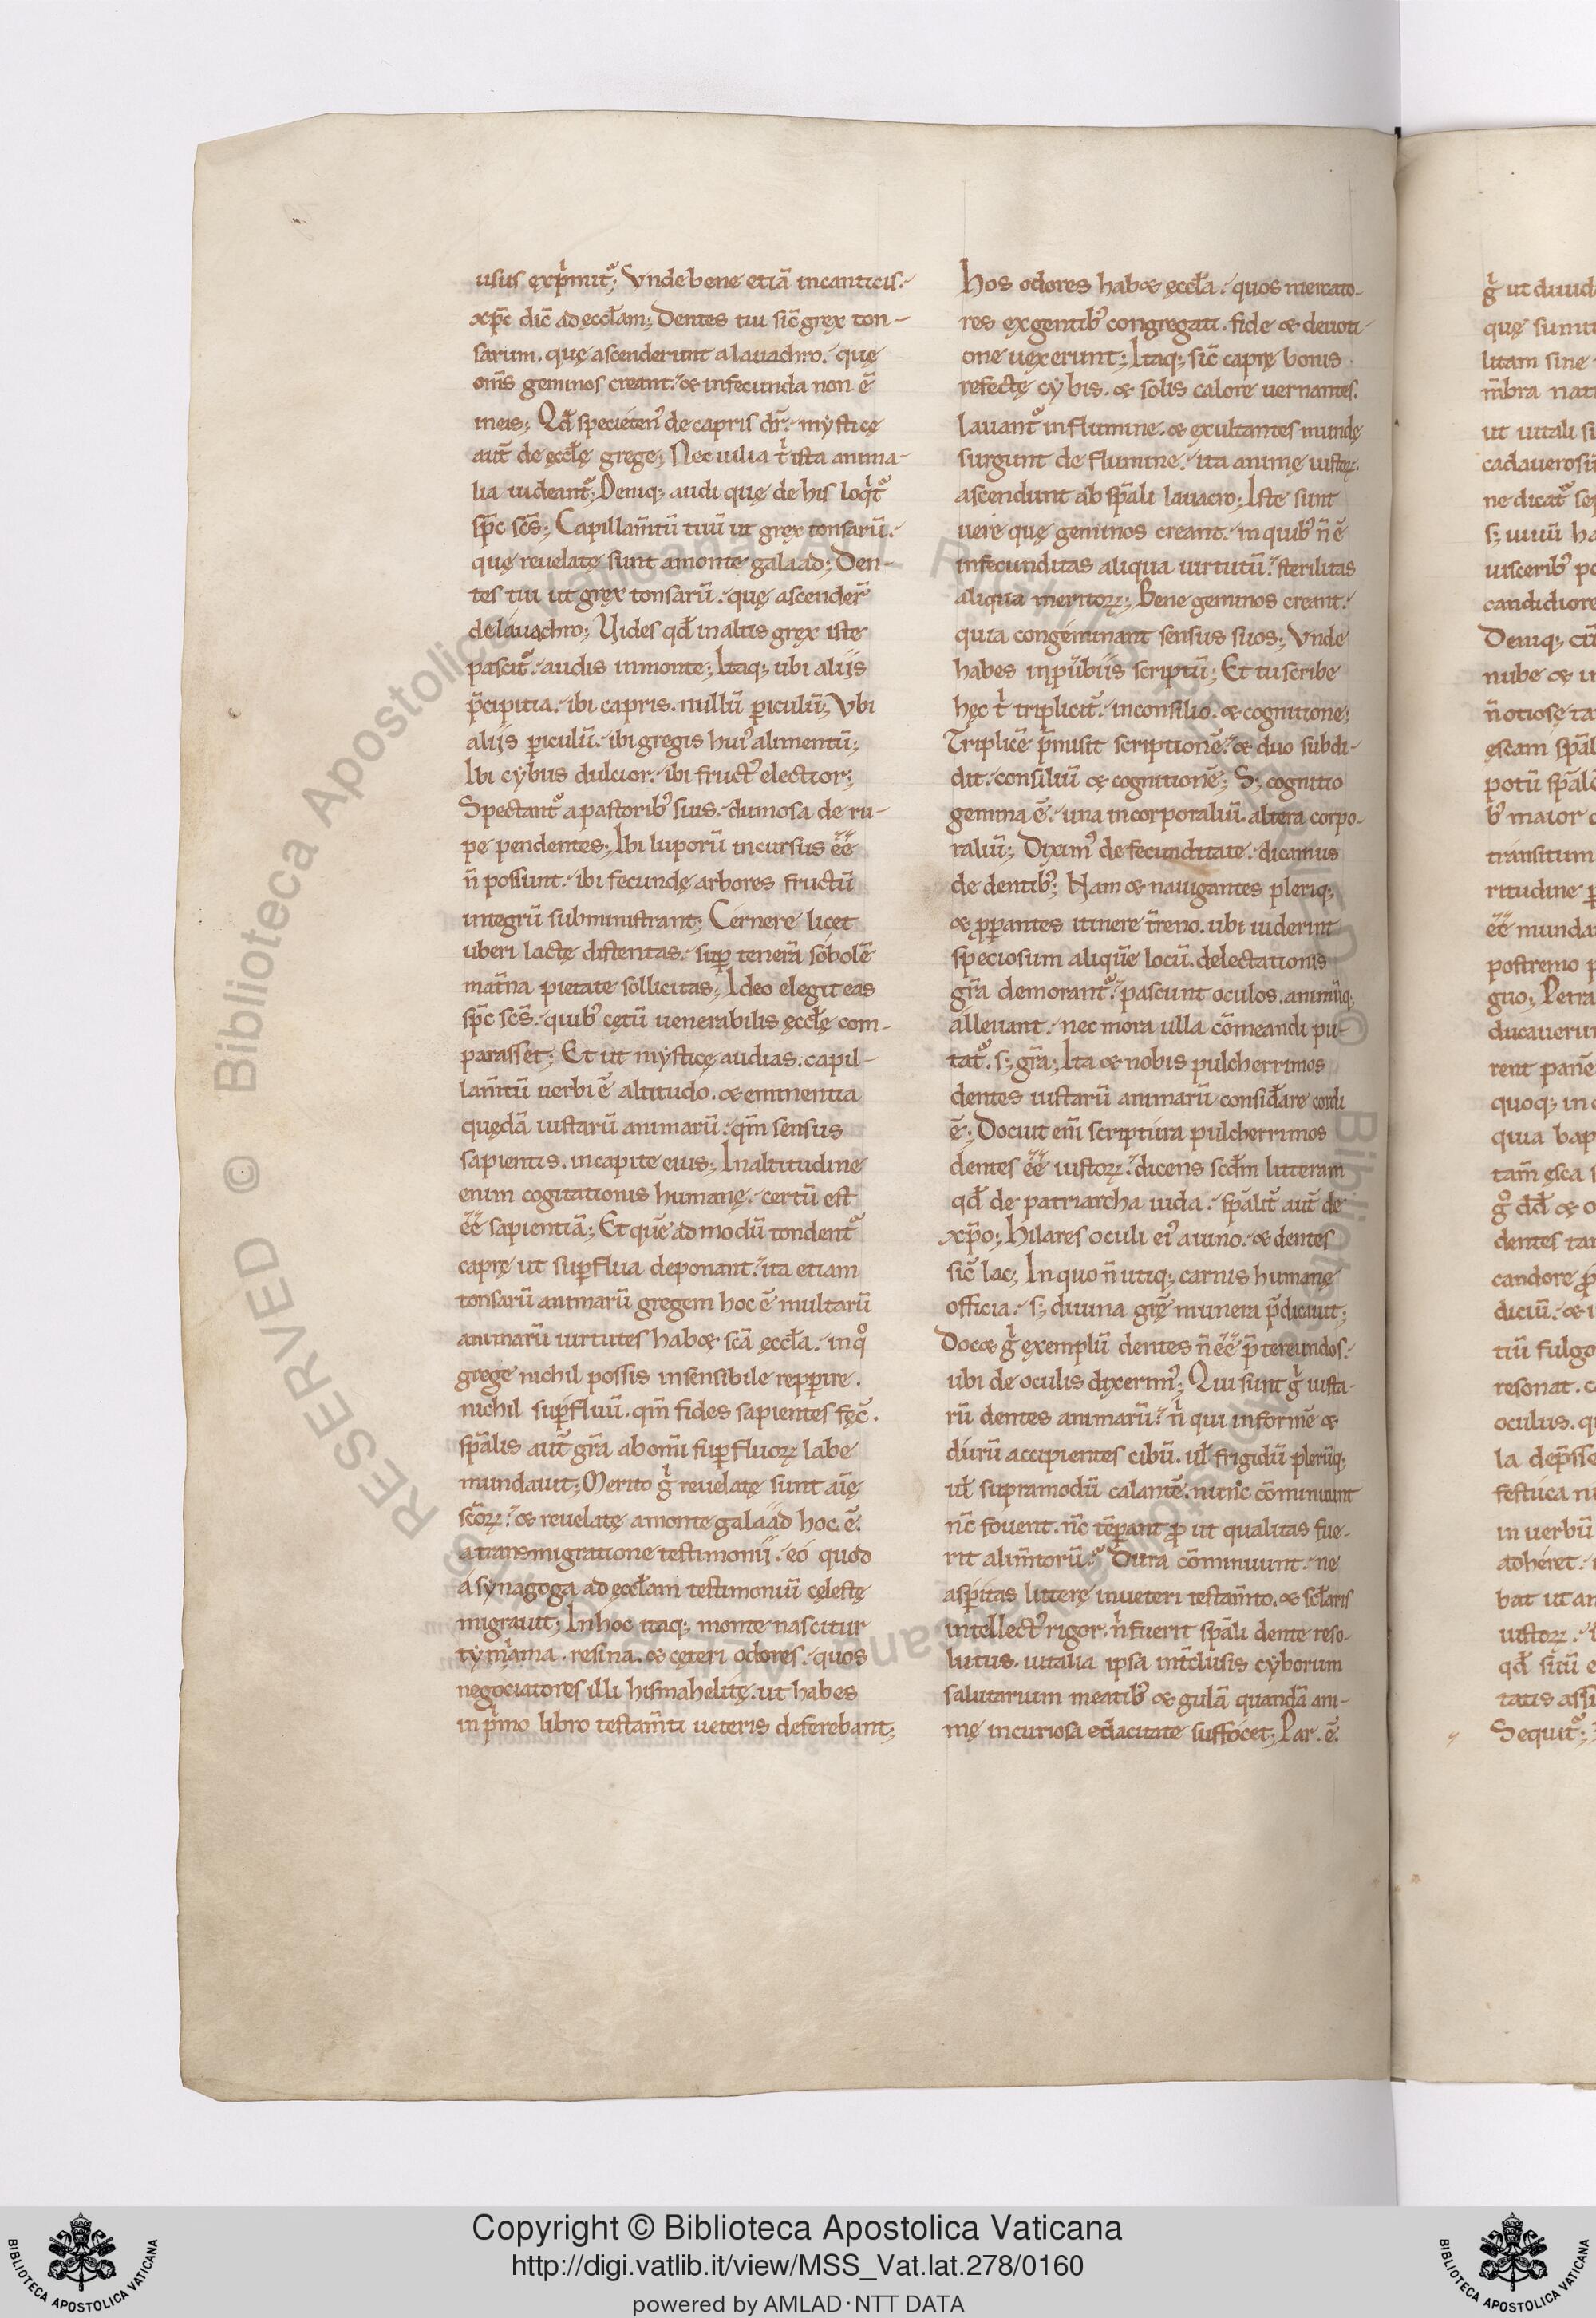 usus exp̄mit᷑; Vnde bene etiā in canticis.
xp̄c dic̄ ad ęccl̄am; Dentes tui sic̄ grex ton-
sarum. quę ascenderunt a lauachro. quę
om̄s geminos creant. & infecunda non ē
in eis; Qđ specieten᾿ de capris dr̄. mysticę
aut̄ de ęccl̄ę grege; Nec uilia t ista anima-
lia uideant᷑; Deniq; audi quę de his loqit᷑
sp̄c sc̄s; Capillam̄tū tuū ut grex tonsarū.
quę reuelatę sunt a monte galaad; Den-
tes tui ut grex tonsarū. quę ascender̄
de lauachro; Uides qđ in altis grex iste
pascit᷑. audis in monte; Itaq; ubi alijs
p̄cipitia. ibi capris. nullū ꝑiculū; Vbi
alijs ꝑiculū. ibi gregis hui᾿ alimentū;
Ibi cybus dulcior. ibi fruct᾿ electior;
Spectant᷑ a pastorib᾿ suis. dumosa de ru-
pe pendentes; Ibi luporū incursus ēē
n̄ possunt. ibi fecundę arbores fructū
integrū subministrant; Cernere licet
uberi lactę distentas. suꝑ tenerā sobolē
mat̄na pietate sollicitas; Ideo elegit eas
sp̄c sc̄s. quib᾿ cętū uenerabilis ęccl̄ę com-
parasset; Et ut mysticę audias. capil-
lam̄tū uerbi ē altitudo. & eminentia
quędā iustarū animarū. qm̄ sensus
sapientis. in capite eius; In altitudine
enim cogitationis humanę. certū est
ēē sapientiā; Et quē ad modū tondent᷑
caprę ut suꝑflua deponant. ita etiam
tonsarū animarū gregem hoc ē multarū
animarū uirtutes hab& sc̄a ęccl̄a. in qͦ
grege nichil possis insensibile repꝑire.
nichil suꝑfluū. qm̄ fides sapientes fęc̄.
sp̄alis aut̄ gr̄a ab om̄i suꝑfluoꝝ labe
mundauit; Merito gͥ reuelatę sunt aīę
sc̄oꝝ. & reuelatę a monte galaad hoc ē.
a transmigratione testimonii. eo quod
a synagoga ad ęccl̄am testimoniū cęlestę
migrauit; In hoc itaq; monte nascitur
tymͥama. resina. & cęteri odores. quos
negociatores illi hismahelitę. ut habes
in pͥmo libro testam̄ti ueteris deferebant;
hos odores hab& ęccl̄a. quos mercato-
res ex gentib᾿ congregati. fide & deuoti-
one uexerunt; Itaq; sic̄ caprę bonis
refectę cybis. & solis calore uernantes.
lauant᷑ in flumine. & exultantes mundę
surgunt de flumine. ita animę iustoꝝ.
ascendunt ab sp̄ali lauacro; Iste sunt
uere quę geminos creant. in quib᾿ n̄ ē
infecunditas aliqua uirtutū. sterilitas
aliqua meritoꝝ; Bene geminos creant.
quia congeminant sensus suos; Vnde
habes in ꝓūbiis scriptū; Et tu scribe
hęc t triplicit᷑. in consilio. & cognitione;
Triplicē p̄misit scriptionē. & duo subdi-
dit. consiliū & cognitionē; S; cognitio
gemina ē. una incorporaliū. altera corpo-
raliū; Dixim᾿ de fecunditate. dicamus
de dentib᾿; Nam & nauigantes pleriq;
& ꝓꝑantes itinere t̄reno. ubi uiderint
speciosum aliquē locū. delectationis
gr̄a demorant᷑. pascunt oculos. animūq;
alleuant. nec mora ulla cōmeandi pu-
tat᷑. s; gr̄a; Ita & nobis pulcherrimos
dentes iustarū animarū considāre cordi
ē; Docuit em̄ scriptura pulcherrimos
dentes ēē iustoꝝ. dicens scd̄m litteram
qđ de patriarcha iuda. sp̄alit̄ aut̄ de
xp̄o; Hilares oculi ei᾿ a uino. & dentes
sic̄ lac; In quo n̄ utiq; carnis humanę
officia. s; diuina gr̄ę munera p̄dicauit;
Doc& gͥ exemplū dentes n̄ ēē p̄tereundos.
ubi de oculis dixerim᾿; Qui sunt gͥ iusta-
rū dentes animarū. nͥ qui informē &
durū accipientes cibū. ul̄ frigidū plerūq;
ul̄ supra modū calantē. nunc cōminuunt
nc̄ fouent. nc̄ tēꝑant ꝓ ut qualitas fue-
rit alim̄torū. Dura cōminuunt. ne
asꝑitas litterę in ueteri testam̄to. & scl̄aris
intellect᾿ rigor. nͥ fuerit sp̄ali dente reso-
lutus. uitalia ipsa int̄clusis cyborum
salutarium meatib᾿ & gulā quandā ani-
mę incuriosa edacitate suffocet; Par. ē.
Copyright © Biblioteca Apostolica Vaticana
http://digi.vatlib.it/view/MSS_Vat.lat.278/0160
powered by AMLAD·NTT DATA
BIBLIOTECA APOSTOLICA VATICANA
BIBLIOTECA APOSTOLICA VATICANA